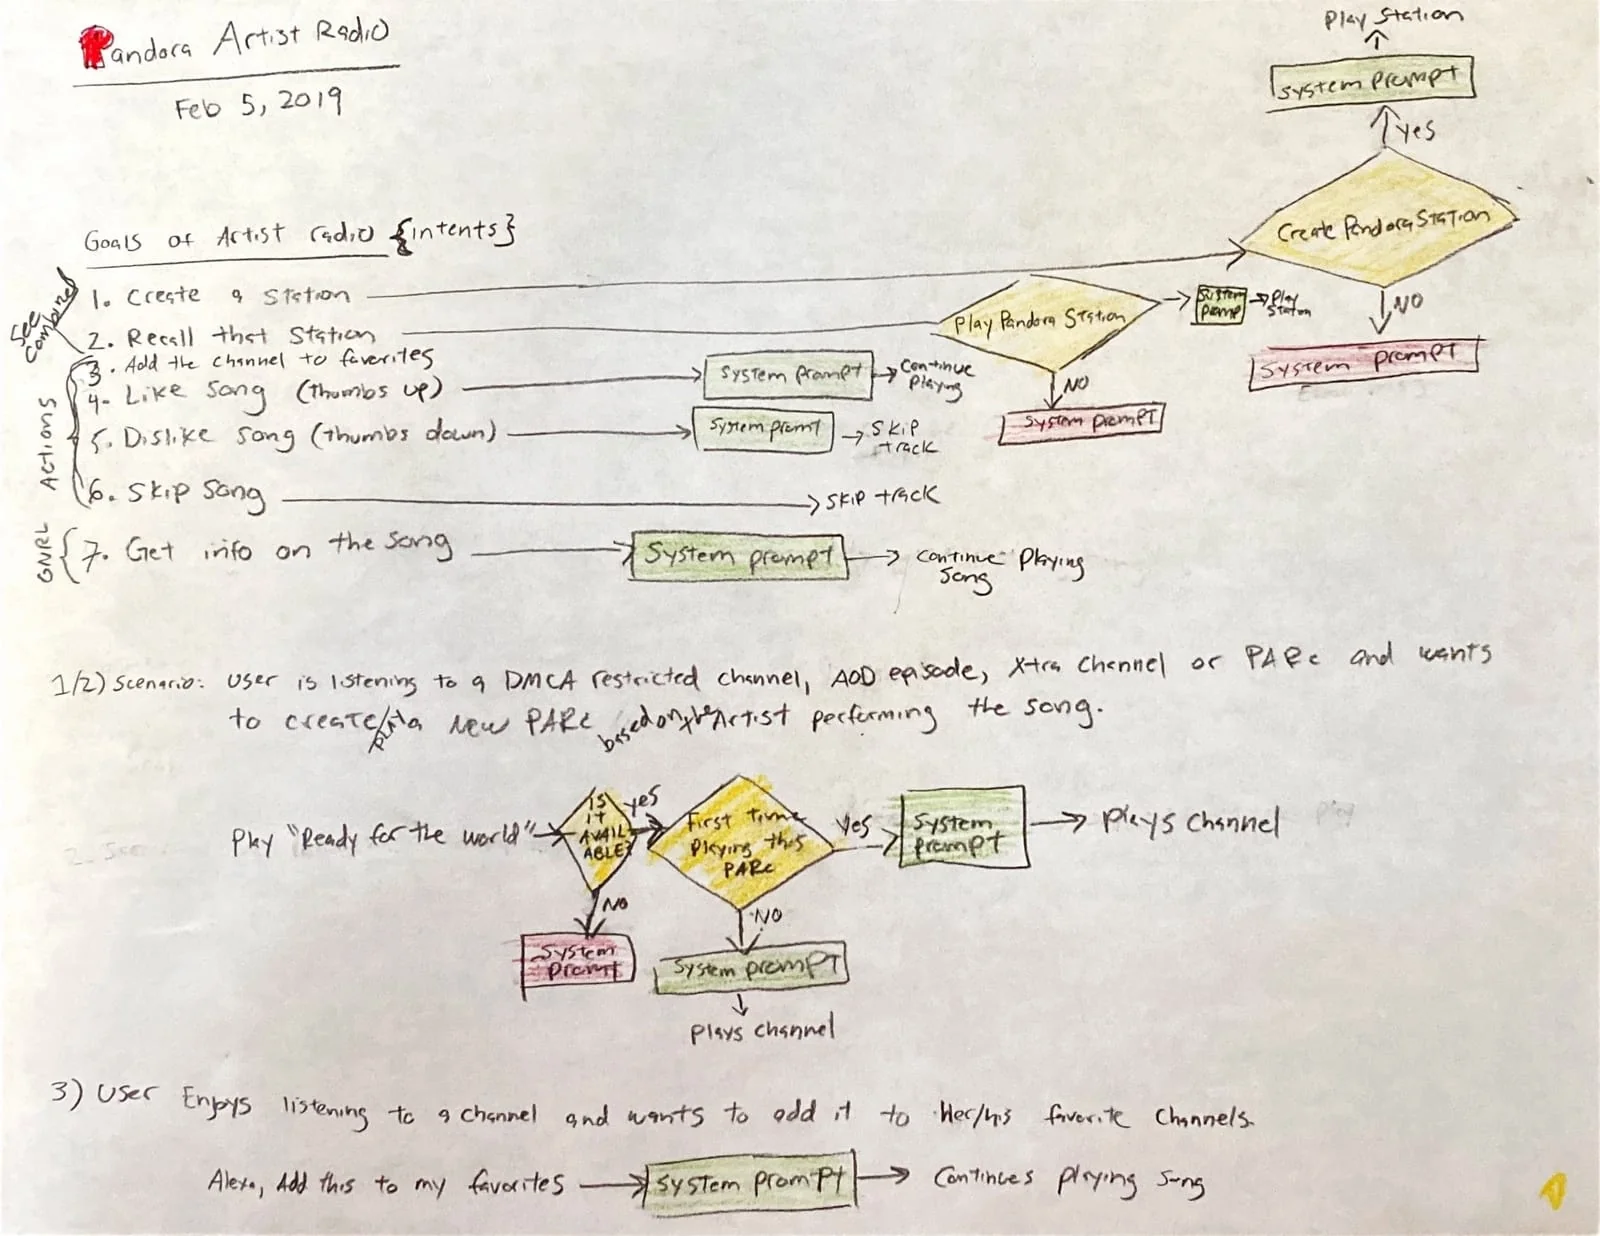 Pandora Artist Radio
Feb 5, 2019
Play Station
System prompt
yes
Create Pandora Station
NO
System prompt
Goals of Artist radio {intents}
See combined
1. Create a Station
2. Recall that Station
Play Pandora Station
System promp
Play Station
NO
System prompt
ACTIONS
3. Add the channel to favorites
4. Like Song (thumbs up)
System prompt
Continue Playing
5. Dislike Song (thumbs down)
System promt
SKIP track
6. Skip Song
SKIP track
GNRL
7. Get info on the Song
System prompt
Continue Playing Song
1/2) Scenario: User is listening to a DMCA restricted channel, AOD episode, Xtra Channel or PARc and wants
to create/play a New PARc based on the Artist performing the song.
Play "Ready for the world"
IS IT AVAIL ABLE?
yes
First time Playing this PARc
Yes
System prompt
Plays Channel
NO
System promt
NO
System prompt
Plays channel
3) User Enjoys listening to a channel and wants to add it to Her/his favorite Channels.
Alexa, Add this to my favorites
System prompt
Continues playing Song